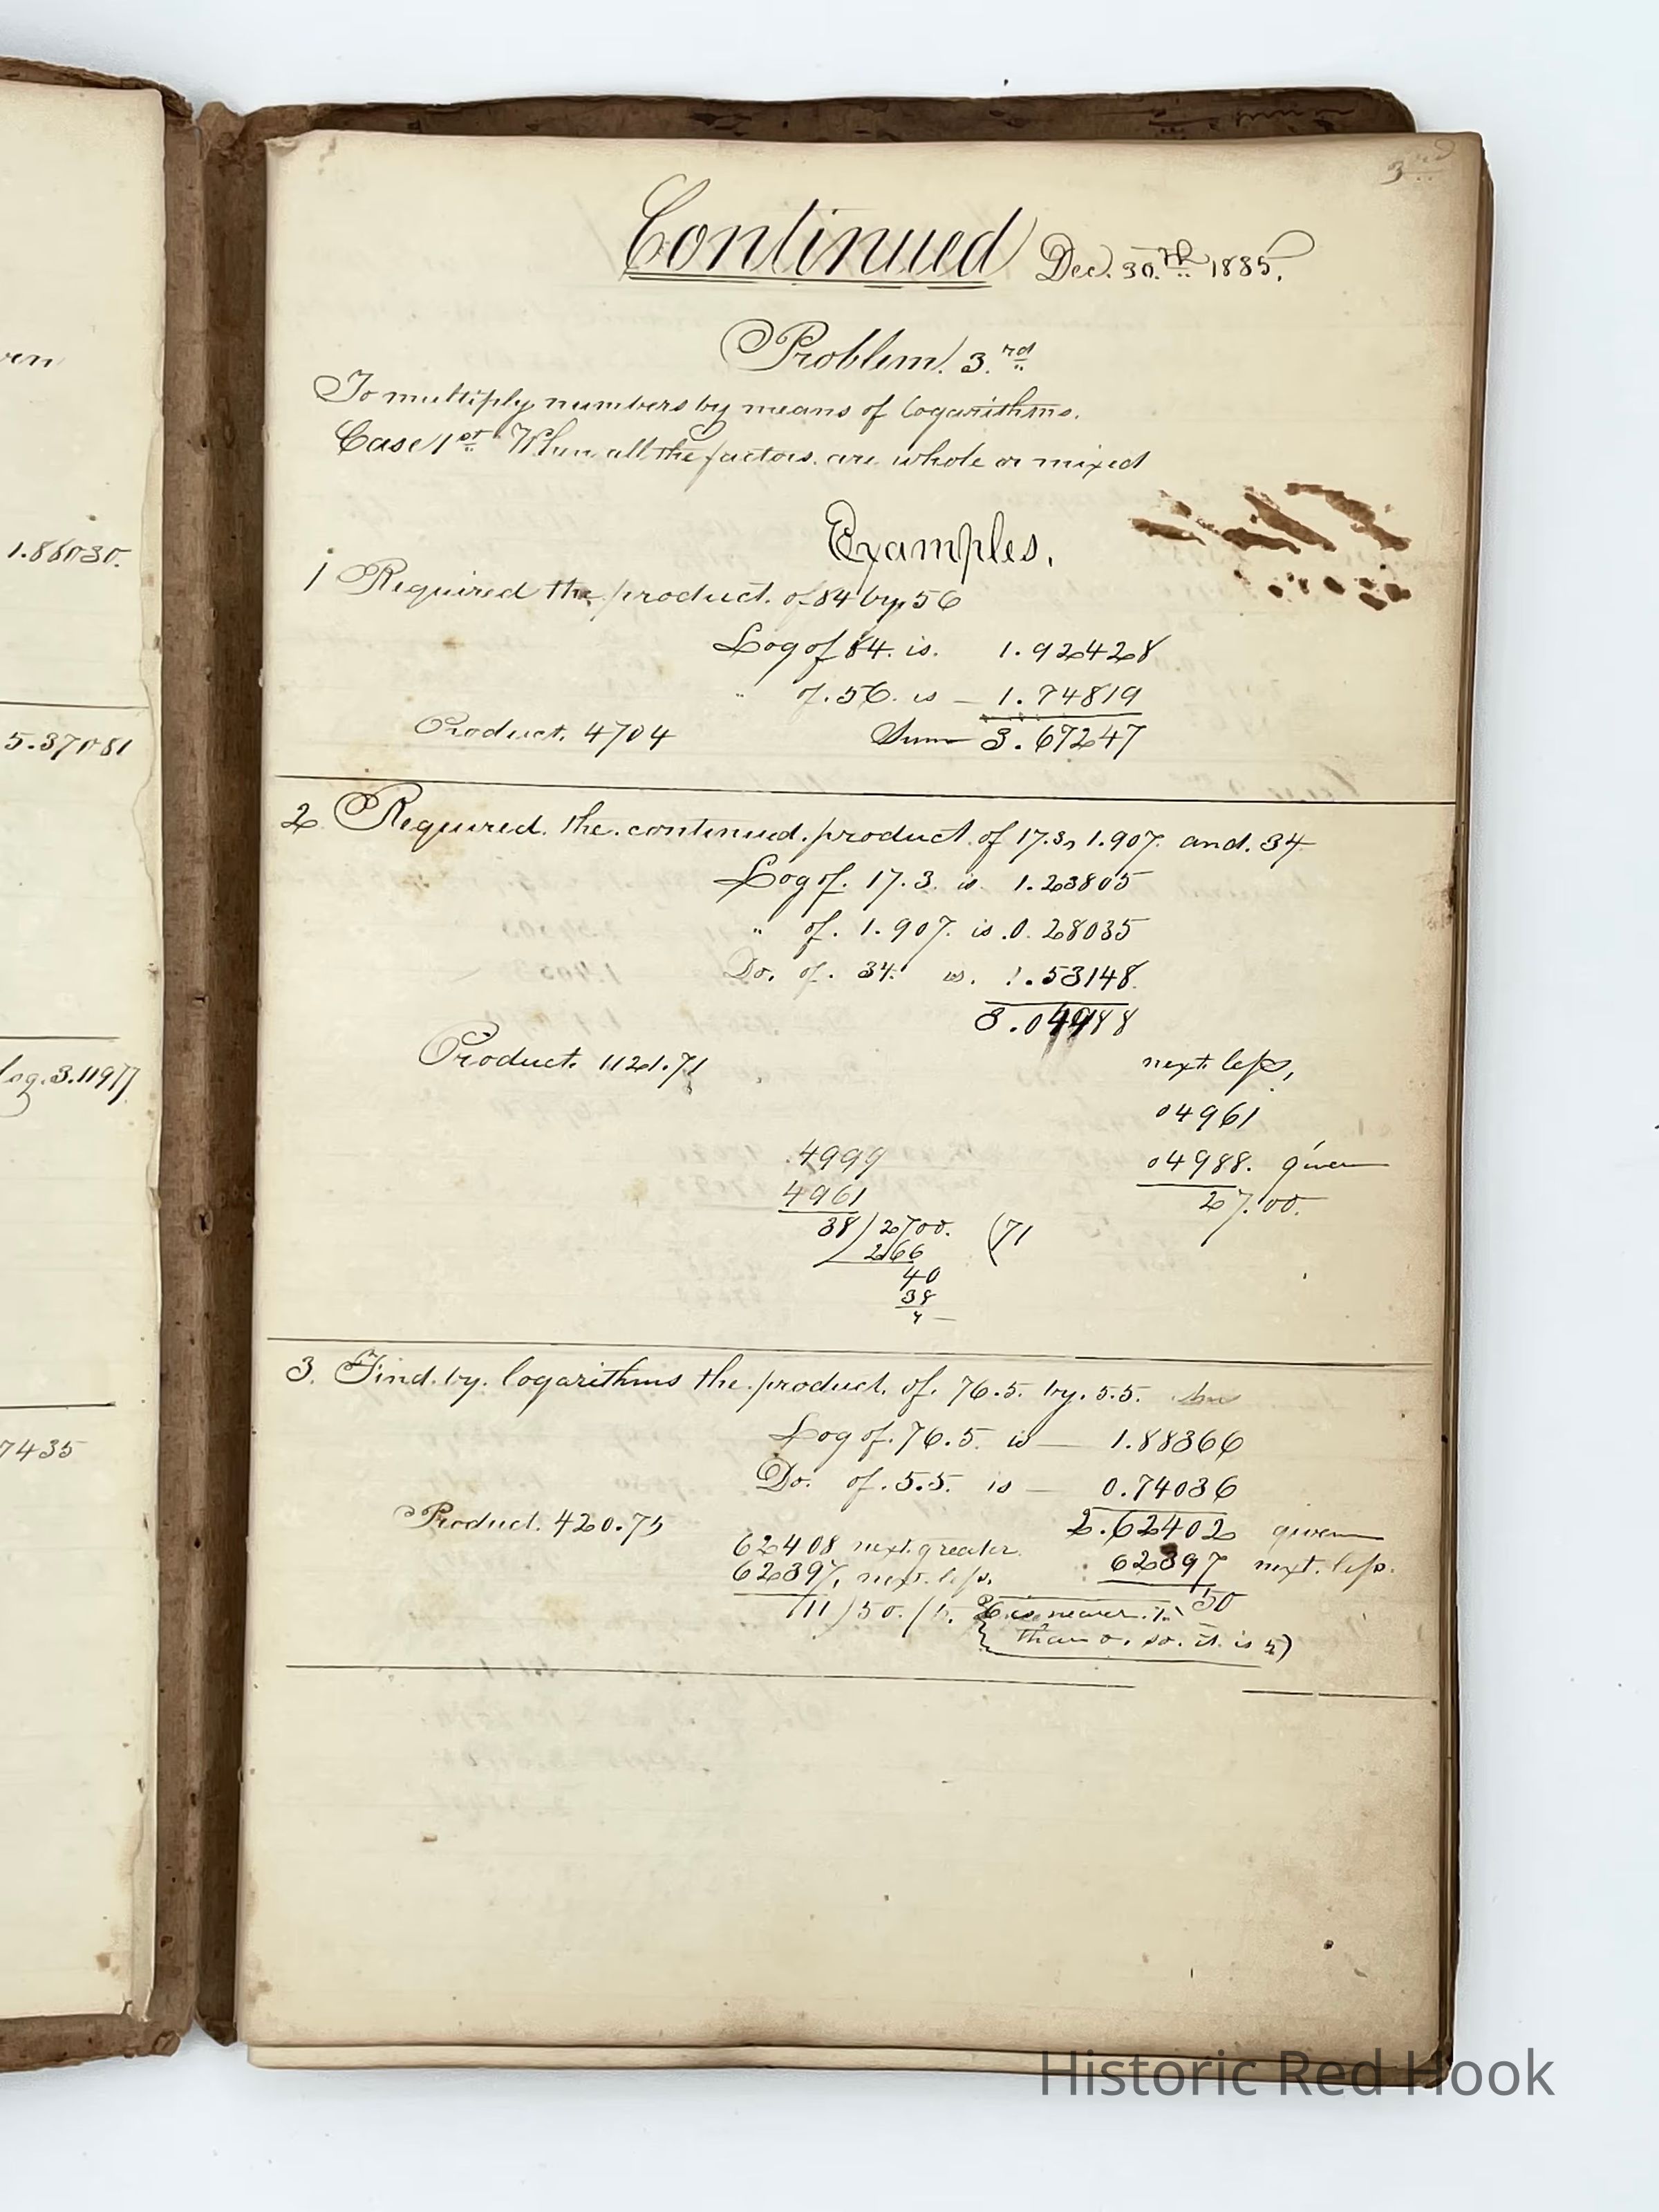 ven
1.88030.
5.37081
log. 3.11977
7435
3rd
Continued Dec. 30.th 1885.
Problem. 3.rd
To multiply numbers by means of Logarithms.
Case 1st When all the factors are whole or mixed
Examples.
1 Required the product of 84 by 56
Log of 84. is. 1.92428
" of. 56. is — 1.74819
Product. 4704 Sum 3.67247
2 Required. the. continued. product. of 17.3, 1.907. and. 34
Log of. 17.3. is. 1.23805
" of. 1.907. is .0.28035
Do. of. 34. is. 1.53148.
3.04988
Product. 1121.71
next. less,
04961
4999
04988. given
4961
27.00.
38) 2700. (71
266
40
38
3. Find. by. logarithms the. product. of. 76.5. by. 5.5.
Log of. 76.5. is — 1.88366
Do. of. 5.5. is — 0.74036
Product. 420.75 2.62402 given
62408 next. greater. 62397 next. less.
62397, next. less. 50
11) 50. (5. is nearer.
than o. so. it. is 5)
Historic Red Hook